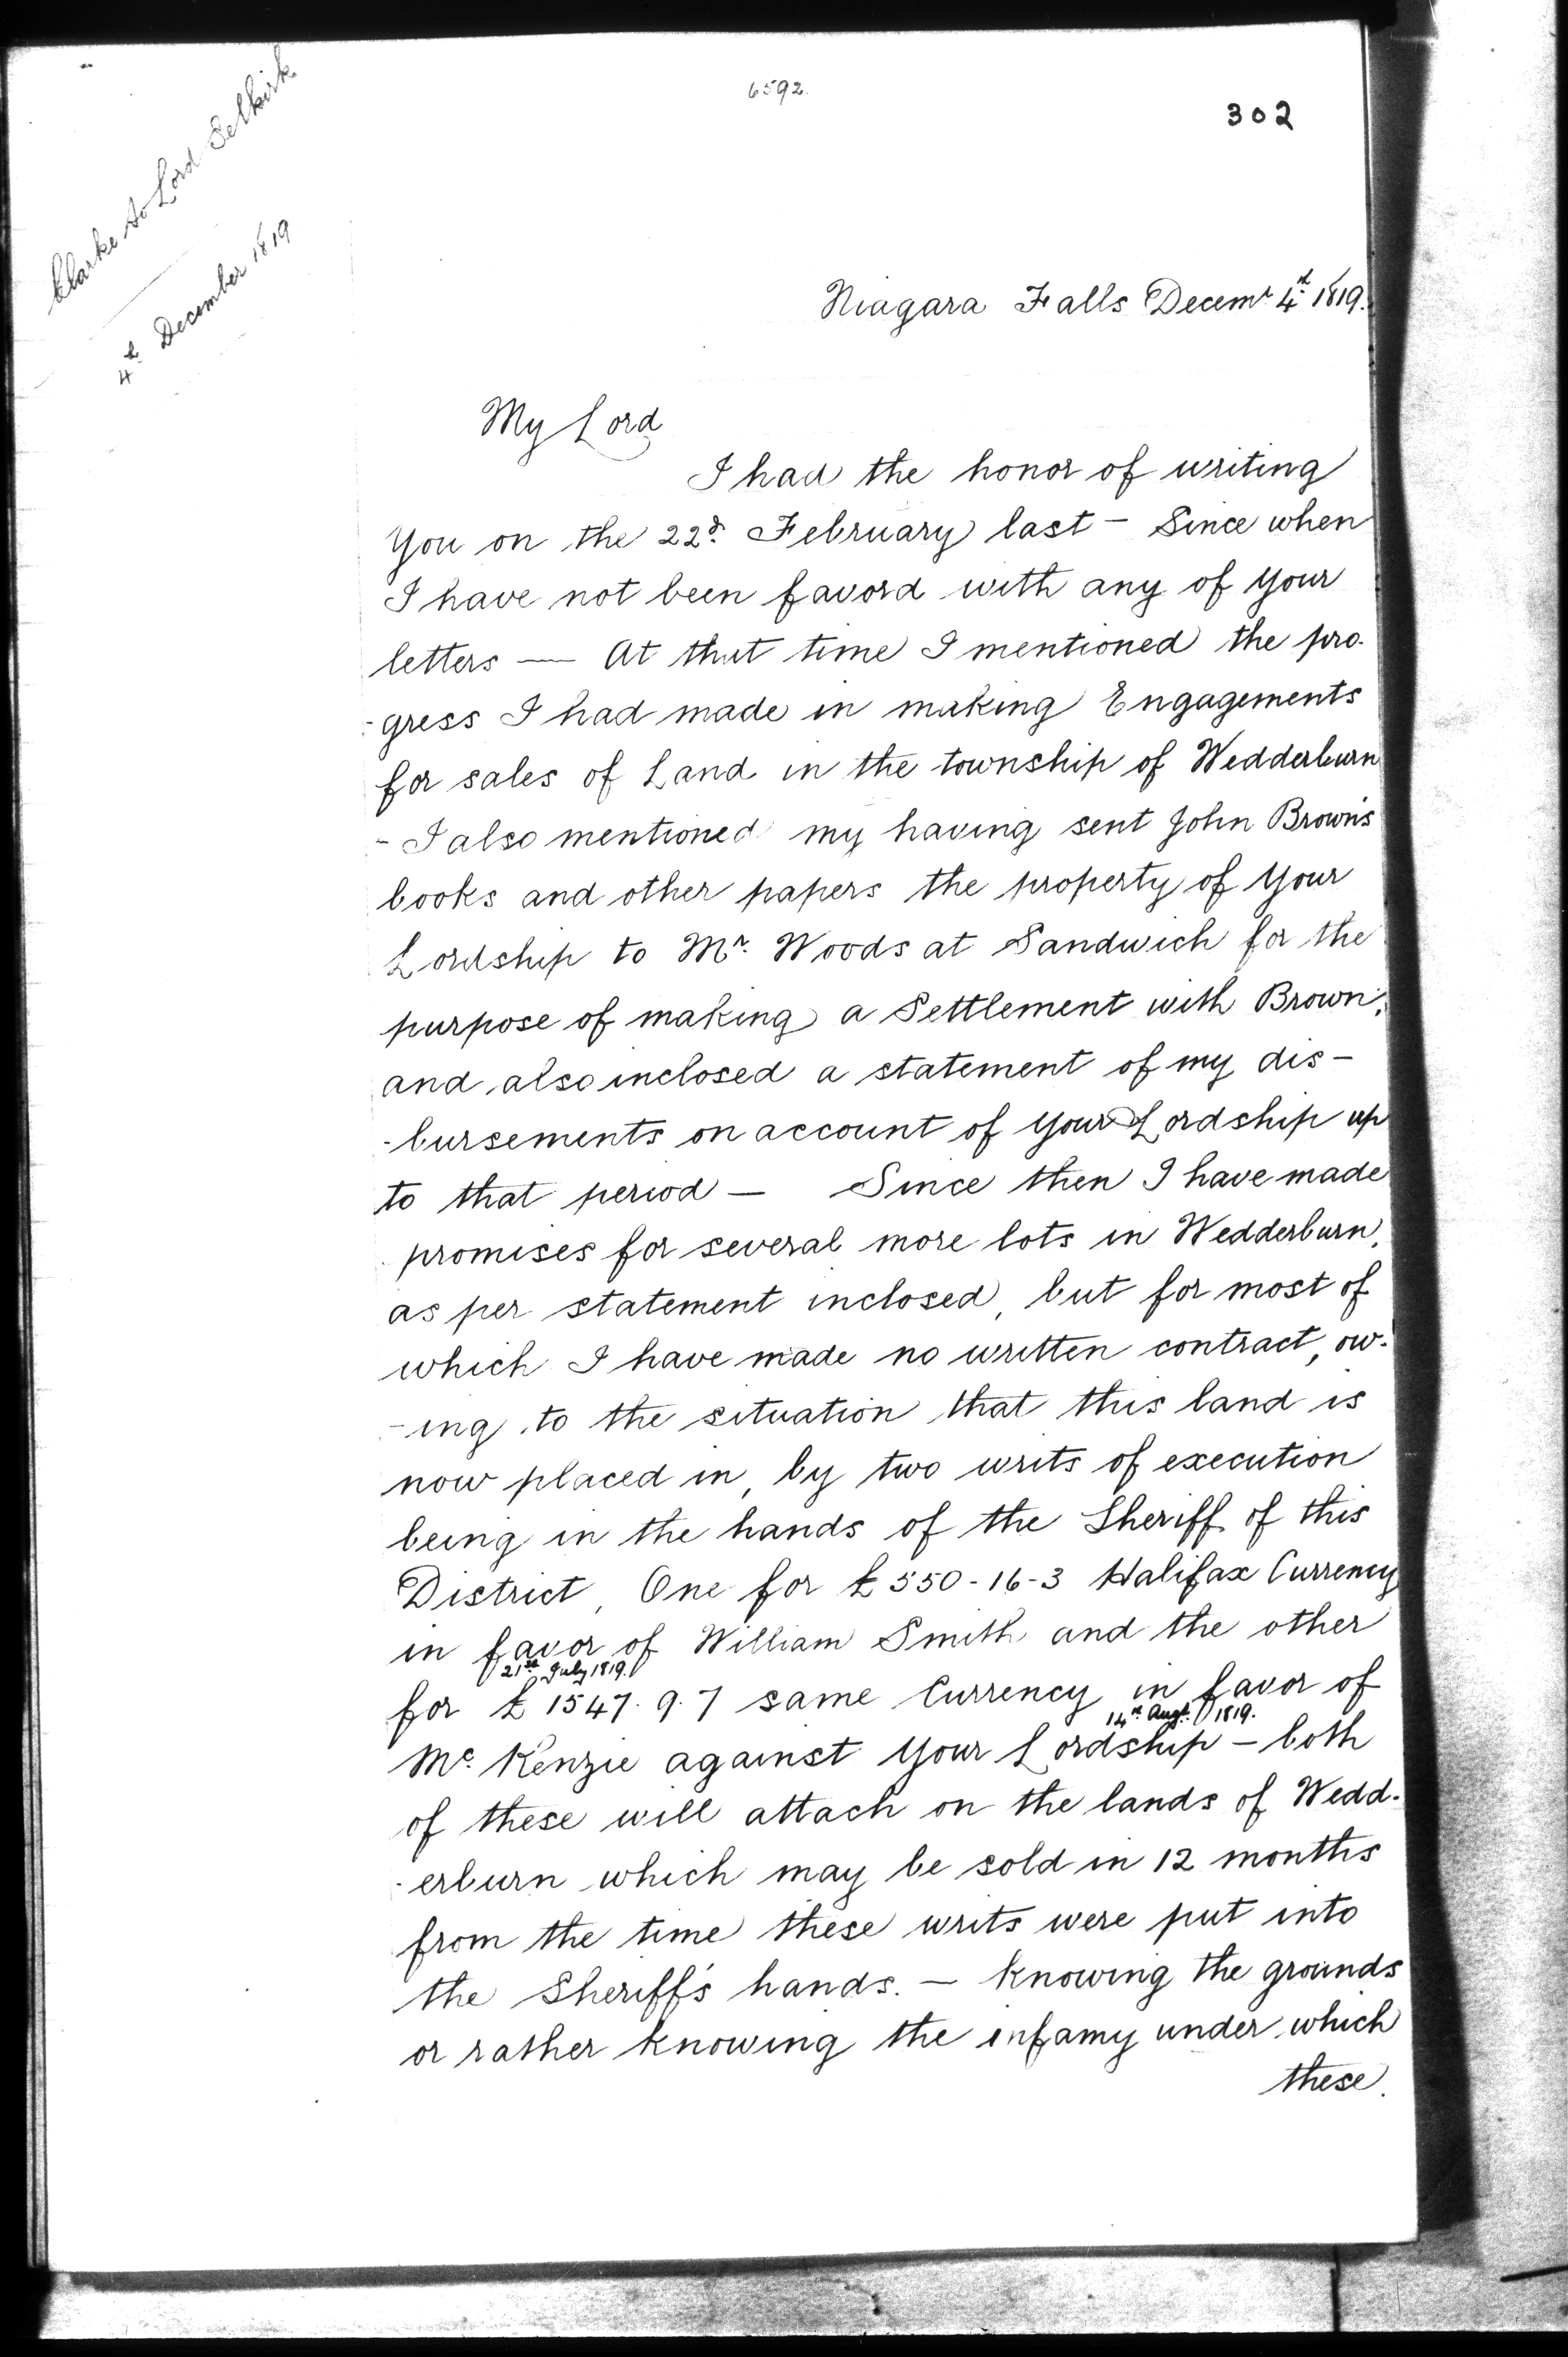 6592.
302
Clarke to Lord Selkirk
4th December 1819
Niagara Falls Decemr 4th 1819.
My Lord
I had the honor of writing
you on the 22d. February last - Since when
I have not been favord with any of your
letters — At that time I mentioned the pro-
-gress I had made in making Engagements
for sales of Land in the township of Wedderburn
- I also mentioned my having sent John Brown's
books and other papers the property of your
Lordship to Mr. Woods at Sandwich for the
purpose of making a Settlement with Brown;
and also inclosed a statement of my dis-
-bursements on account of your Lordship up
to that period — Since then I have made
promises for several more lots in Wedderburn,
as per statement inclosed, but for most of
which I have made no written contract, ow-
-ing to the situation that this land is
now placed in, by two writs of execution
being in the hands of the Sheriff of this
District, One for £550-16-3 Halifax Currency
in favor of William Smith and the other
21st July 1819.
for £1547.9.7 same Currency in favor of
14th Augt. 1819.
Mc. Kenzie against your Lordship - both
of these will attach on the lands of Wedd-
-erburn which may be sold in 12 months
from the time these writs were put into
the Sheriff's hands. — Knowing the grounds
or rather knowing the infamy under which
these.